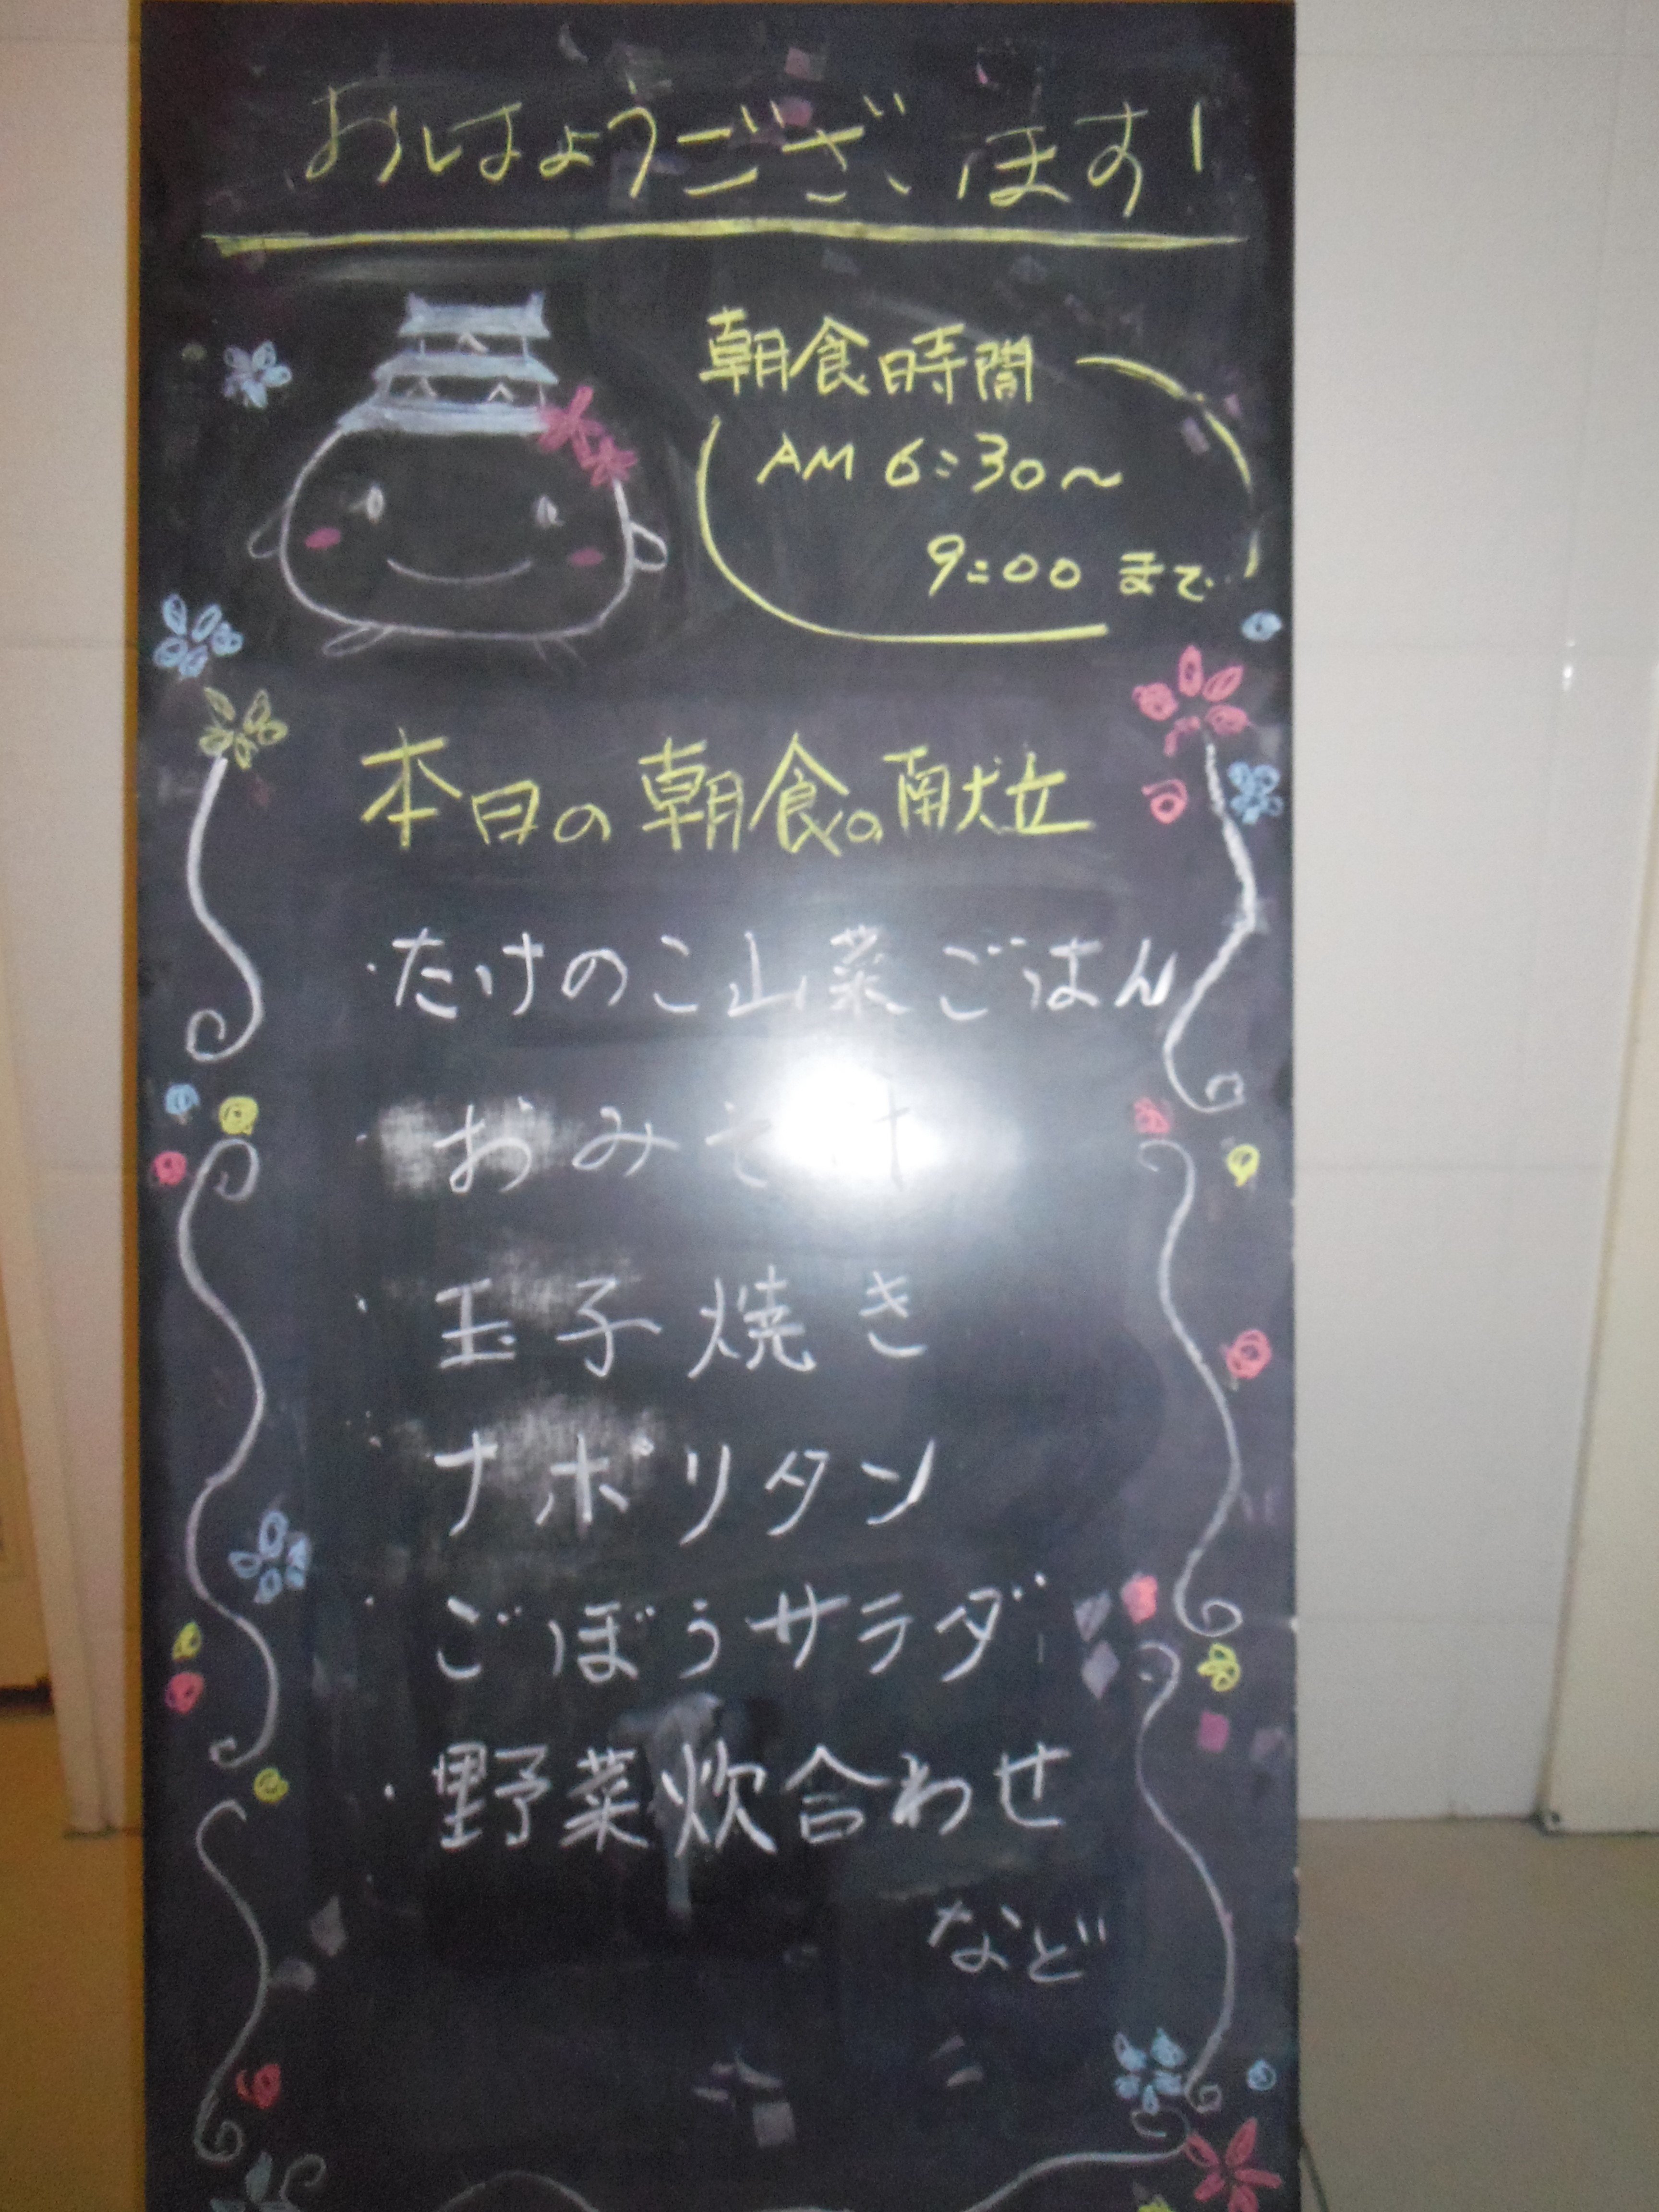 おはようございます!
朝食時間
AM 6:30～
9:00 まで
本日の朝食の献立
・たけのこ山菜ごはん
・おみそ汁
・玉子焼き
・ナポリタン
・ごぼうサラダ
・野菜炊合わせ
など